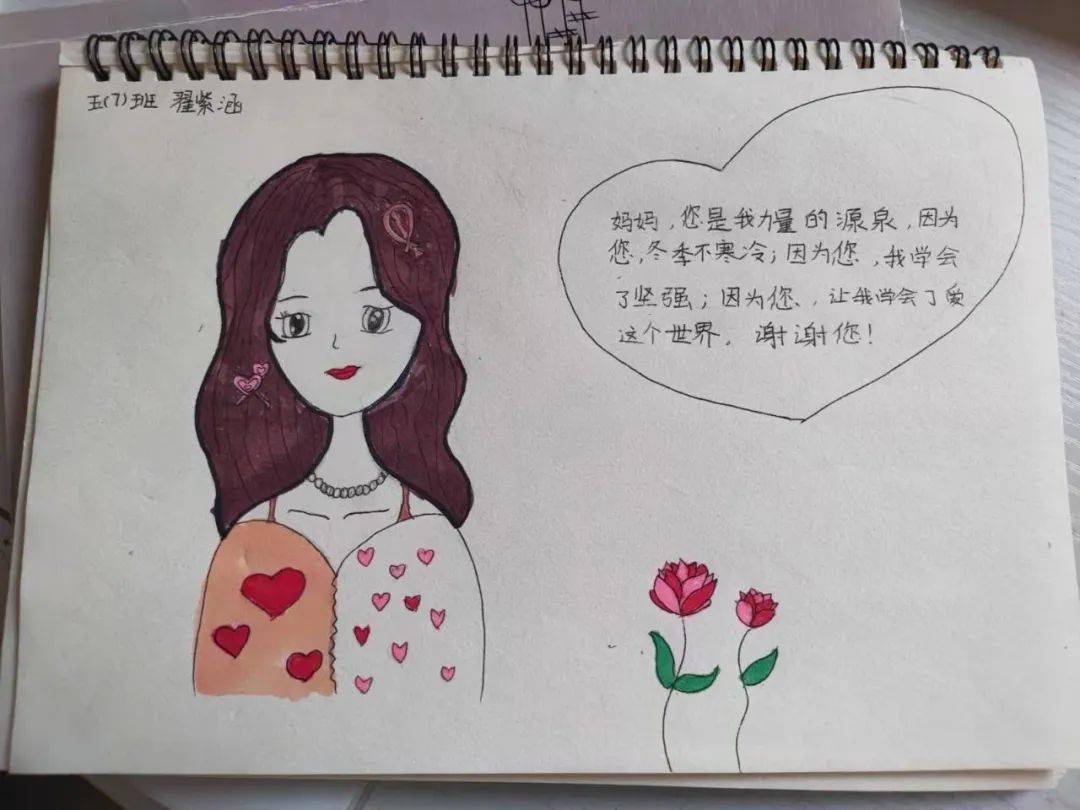 五(7)班 翟紫涵
妈妈，您是我力量的源泉，因为
您，冬季不寒冷；因为您，我学会
了坚强；因为您，，让我学会了爱
这个世界。谢谢您！